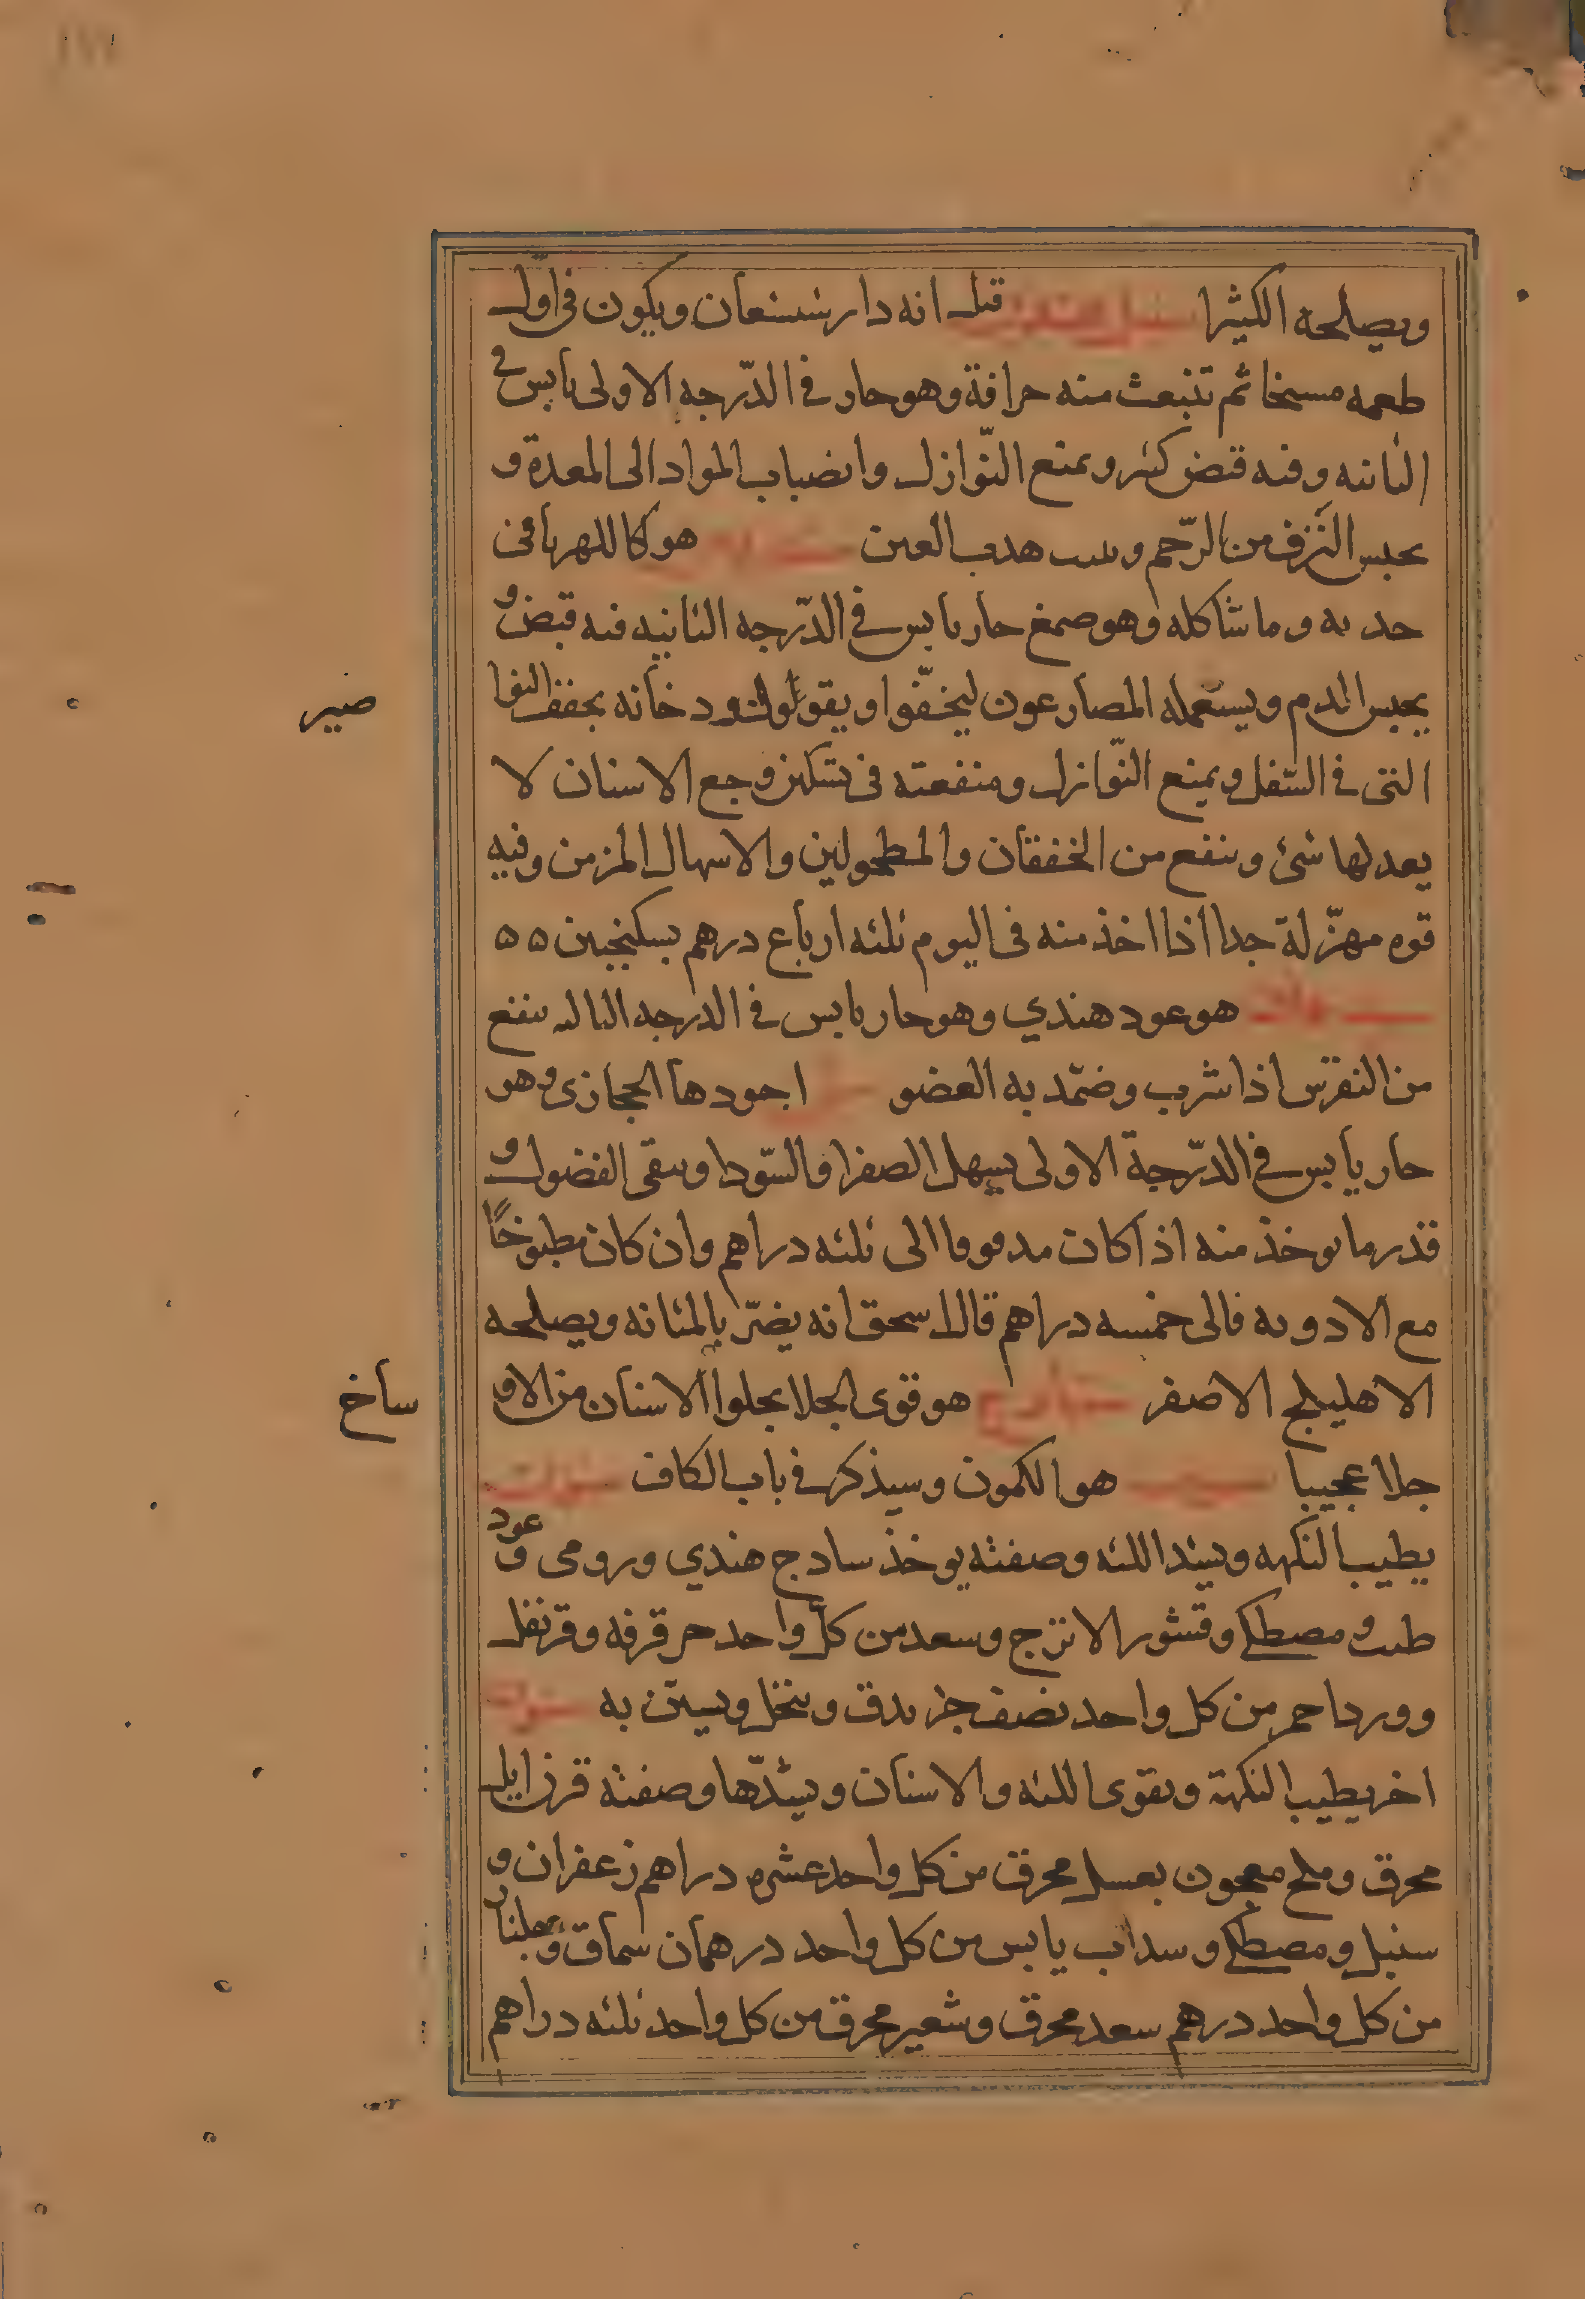 ويصلحه الكثيرا قيل انه دار شيشعان ويكون في اول
طعمه مسخنا ثم تنبعث منه حرافة وهو حار في الدّرجه الاولى يابس في
الثانيه وفيه قبض كثير ويمنع النّوازل وانصباب المواد الى المعدة و
يحبس النّزف من الرّحم وينبت هدب العين هو كالكهربا في
جذبه وما شاكله وهو صمغ حار يابس في الدّرجه الثانيه فيه قبض و
يحبس الدم ويستعمله المصارعون ليخفّفوا ويقووا دخانه يجفف
التى في السّفل ويمنع النّوازل ومنفعته في تسكين وجع الاسنان لا
يعدلها شئ وينفع من الخفقان والمطحولين والاسهال المزمن وفيه
قوه مهزّلة جدا اذا اخذ منه في اليوم ثلثه ارباع درهم بسكنجبين ٥٥
هو عود هندي وهو حار يابس في الدرجه الثالثه ينفع
من النقرس اذا شرب وضمّد به العضو اجودها الحجازى وهو
حار يابس في الدّرجة الاولى يسهل الصفرا والسّودا وينقى الفضول و
قدر ما يوخذ منه اذا كان مدقوقا الى ثلثه دراهم وان كان مطبوخًا
مع الادويه فالى خمسه دراهم قال اسحق انه يضرّ بالمثانه ويصلحه
الاهليلج الاصفر هو قوى الجلا يجلوا الاسنان من
جلا عجيبا هو الكمون وسيذكر في باب الكاف سنون
يطيب النكهه ويشد اللثه وصفته يوخذ سادج هندي ورومى و عود
طيب ومصطكى وقشور الاترج وسعد من كلّ واحد جز قرفه وقرنفل
وورد احمر من كل واحد نصف جز يدق وينخل ويستن به سنون
اخر يطيب النكهة ويقوى اللثه والاسنان ويشدّها وصفته قرن ايل
محرق وملح معجون بعسل محرق من كل واحد عشره دراهم زعفران و
سنبل ومصطكى وسداب يابس من كل واحد درهمان سماق وجلنار
من كل واحد درهم سعد محرق وشعير محرق من كل واحد ثلثه دراهم
صير
ساخ